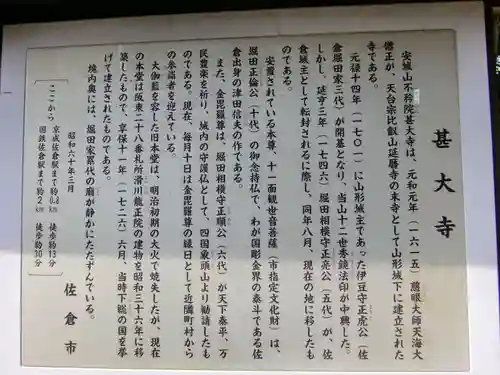 甚大寺
安城山不矜院甚大寺は、元和元年（一六一五）慈眼大師天海大
僧正が、天台宗比叡山延暦寺の末寺として山形城下に建立された
寺である。
元禄十四年（一七〇一）に山形城主であった伊豆守正虎公（佐
倉堀田家三代）が開基となり、当山十二世秀鏡法印が中興した。
しかし、延亨三年（一七四六）堀田相模守正亮公（五代）が、佐
倉城主として転封されるに際し、同年八月、現在の地に移したも
のである。
安置されている本尊、十一面観世音菩薩（市指定文化財）は、
堀田正倫公（十代）の御念持仏で、わが国彫金界の泰斗である佐
倉出身の津田信夫の作である。
また、金毘羅尊は、堀田相模守正順公（六代）が天下泰平、万
民豊楽を祈り、城内の守護仏として、四国象頭山より勧請したも
のである。現在、毎月十日は金毘羅尊の縁日として近隣町村から
の参詣者を迎えている。
大伽藍を容した旧本堂は、明治初期の大火で焼失したが、現在
の本堂は坂東二十八番札所滑川龍正院の建物を昭和三十六年に移
築したもので、享保十一年（一七二六）六月、当時下総の国を挙
げて建立されたものである。
境内奥には、堀田家累代の廟が静かにたたずんでいる。
昭和六十年三月
佐倉市
ここから
京成佐倉駅まで約0.8km 徒歩約13分
国鉄佐倉駅まで約2km 徒歩約30分